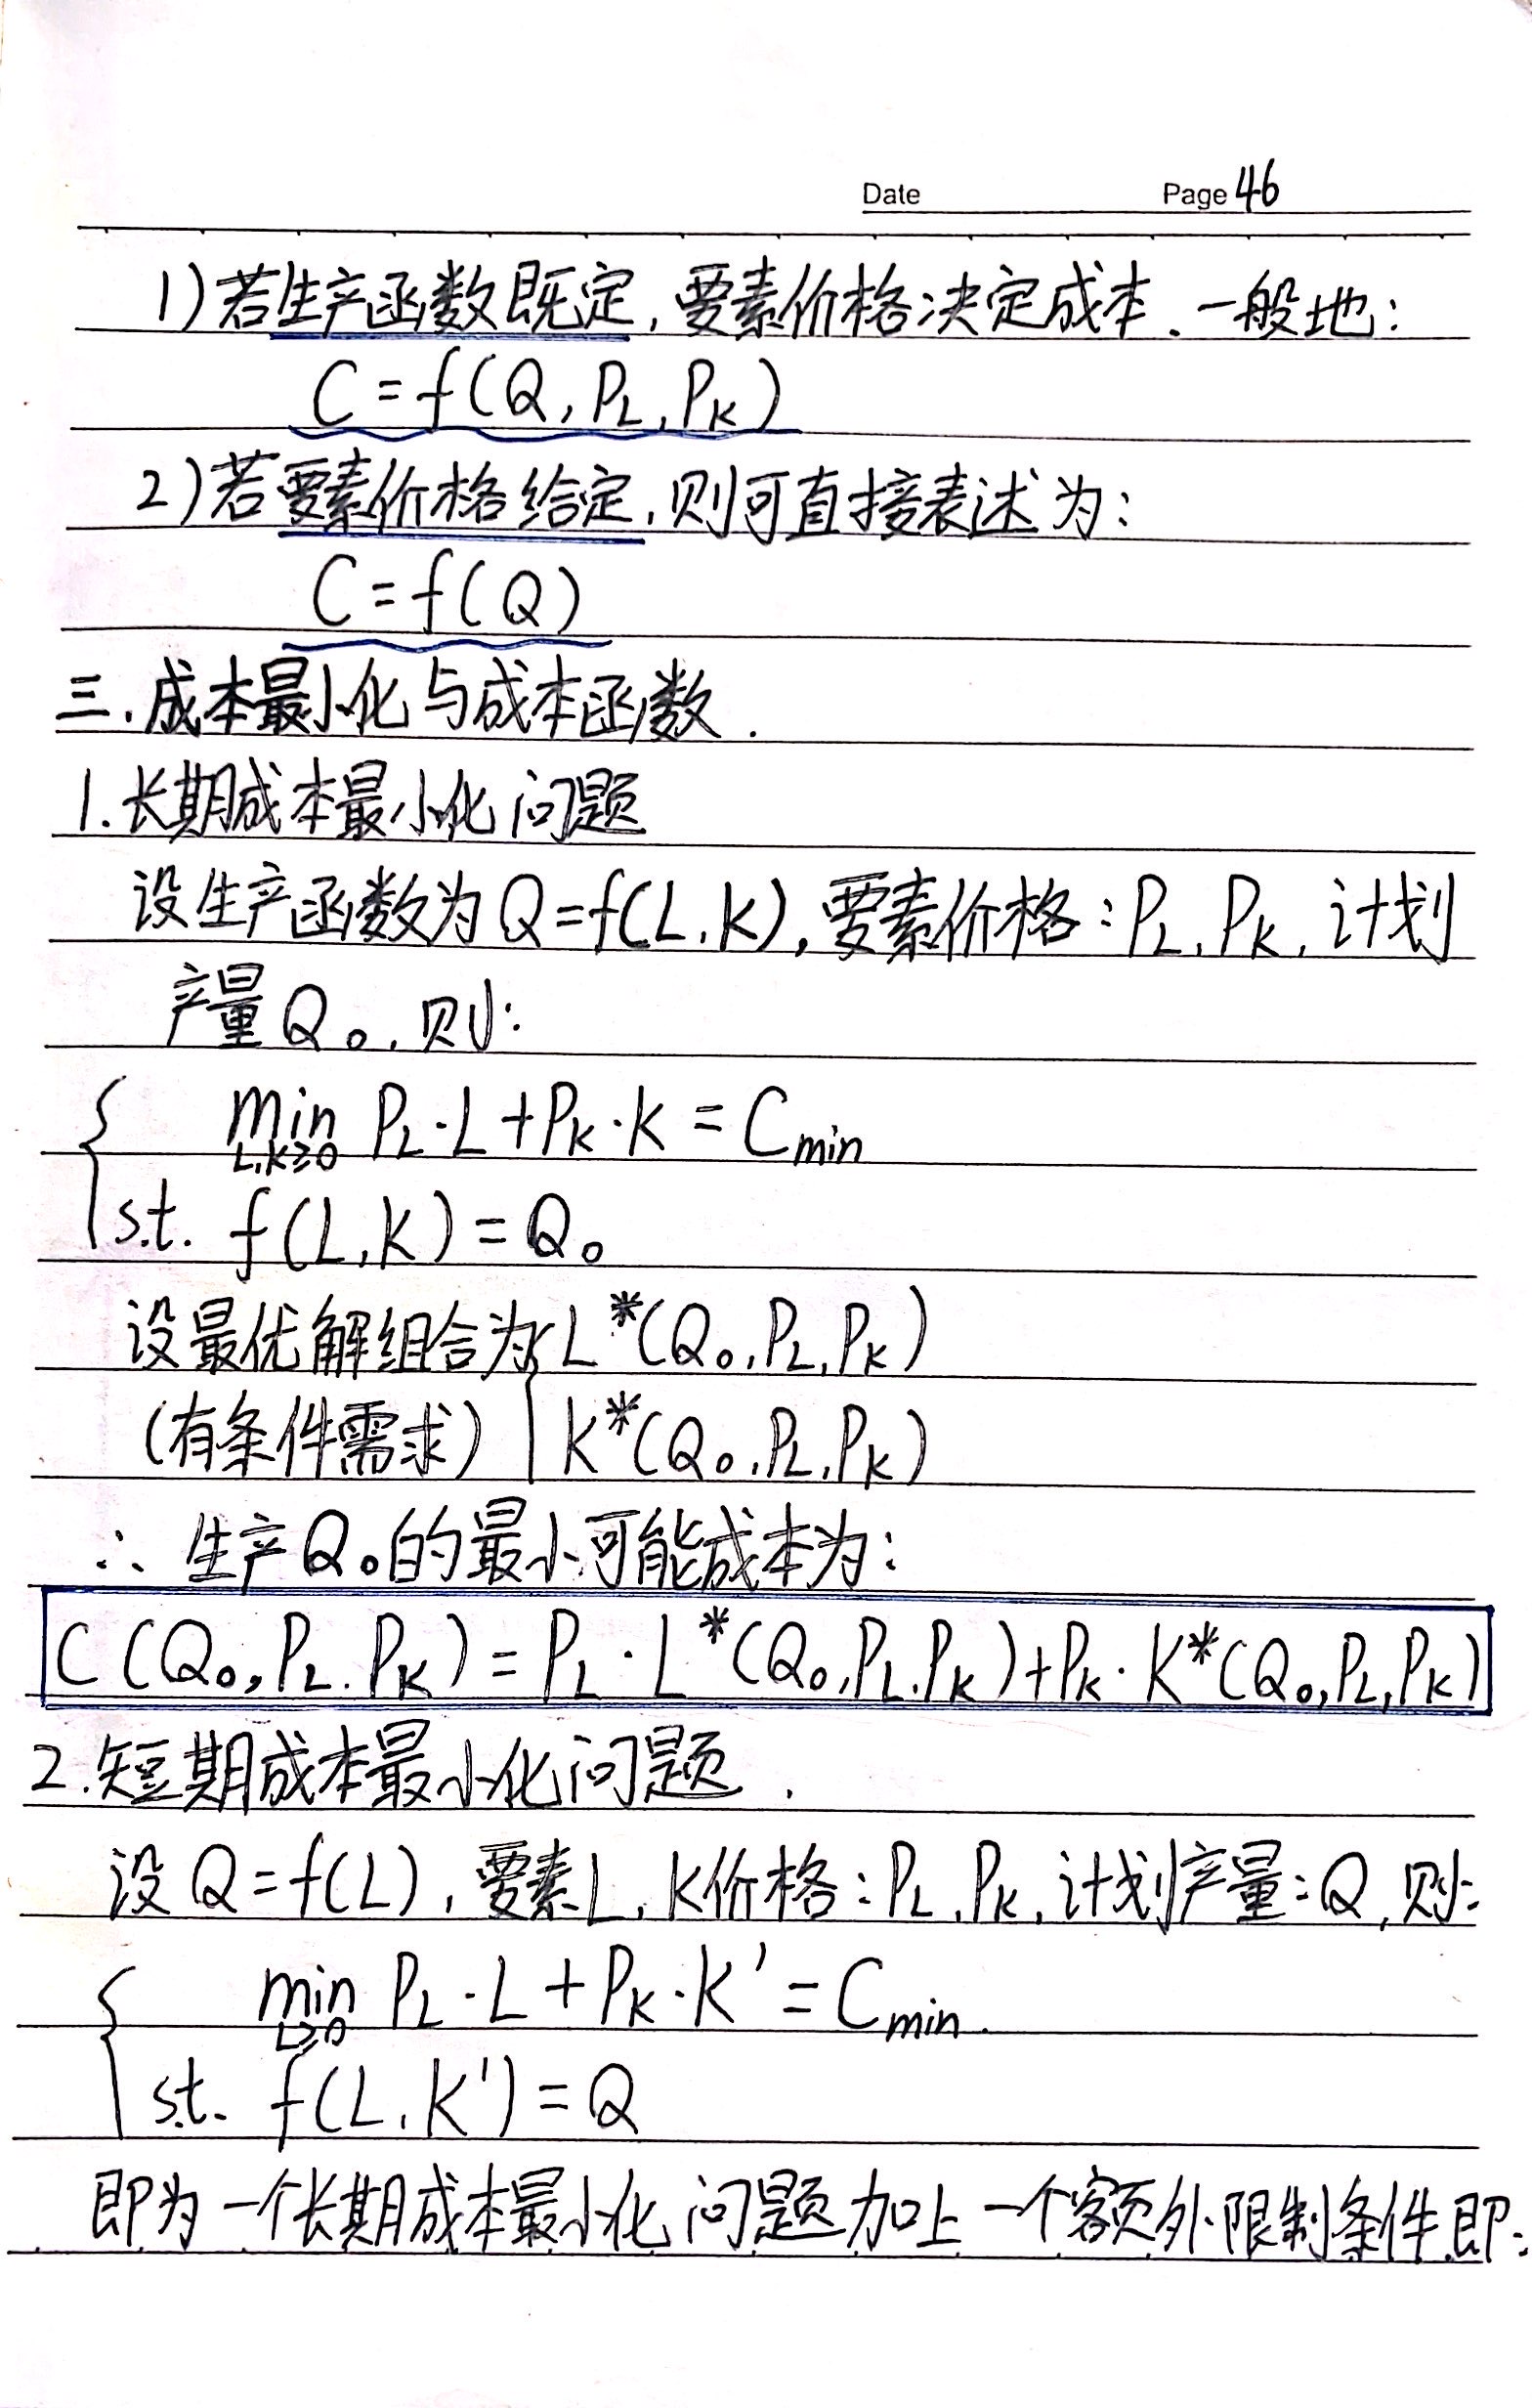 Date Page 46
1)若生产函数既定,要素价格决定成本.一般地:
C=f(Q,PL,PK)
2)若要素价格给定,则可直接表述为:
C=f(Q)
三.成本最小化与成本函数.
1.长期成本最小化问题
设生产函数为Q=f(L,K),要素价格:PL,PK,计划
产量Q₀,则:
{ min PL·L+PK·K=Cmin
L,K≥0
s.t. f(L,K)=Q₀
设最优解组合为{L*(Q₀,PL,PK)
(有条件需求) K*(Q₀,PL,PK)
∴ 生产Q₀的最小可能成本为:
C(Q₀,PL,PK)=PL·L*(Q₀,PL,PK)+PK·K*(Q₀,PL,PK)
2.短期成本最小化问题.
设Q=f(L),要素L,K价格:PL,PK,计划产量:Q,则:
{ min PL·L+PK·K'=Cmin.
L≥0
s.t. f(L,K')=Q
即为一个长期成本最小化问题加上一个额外限制条件.即: